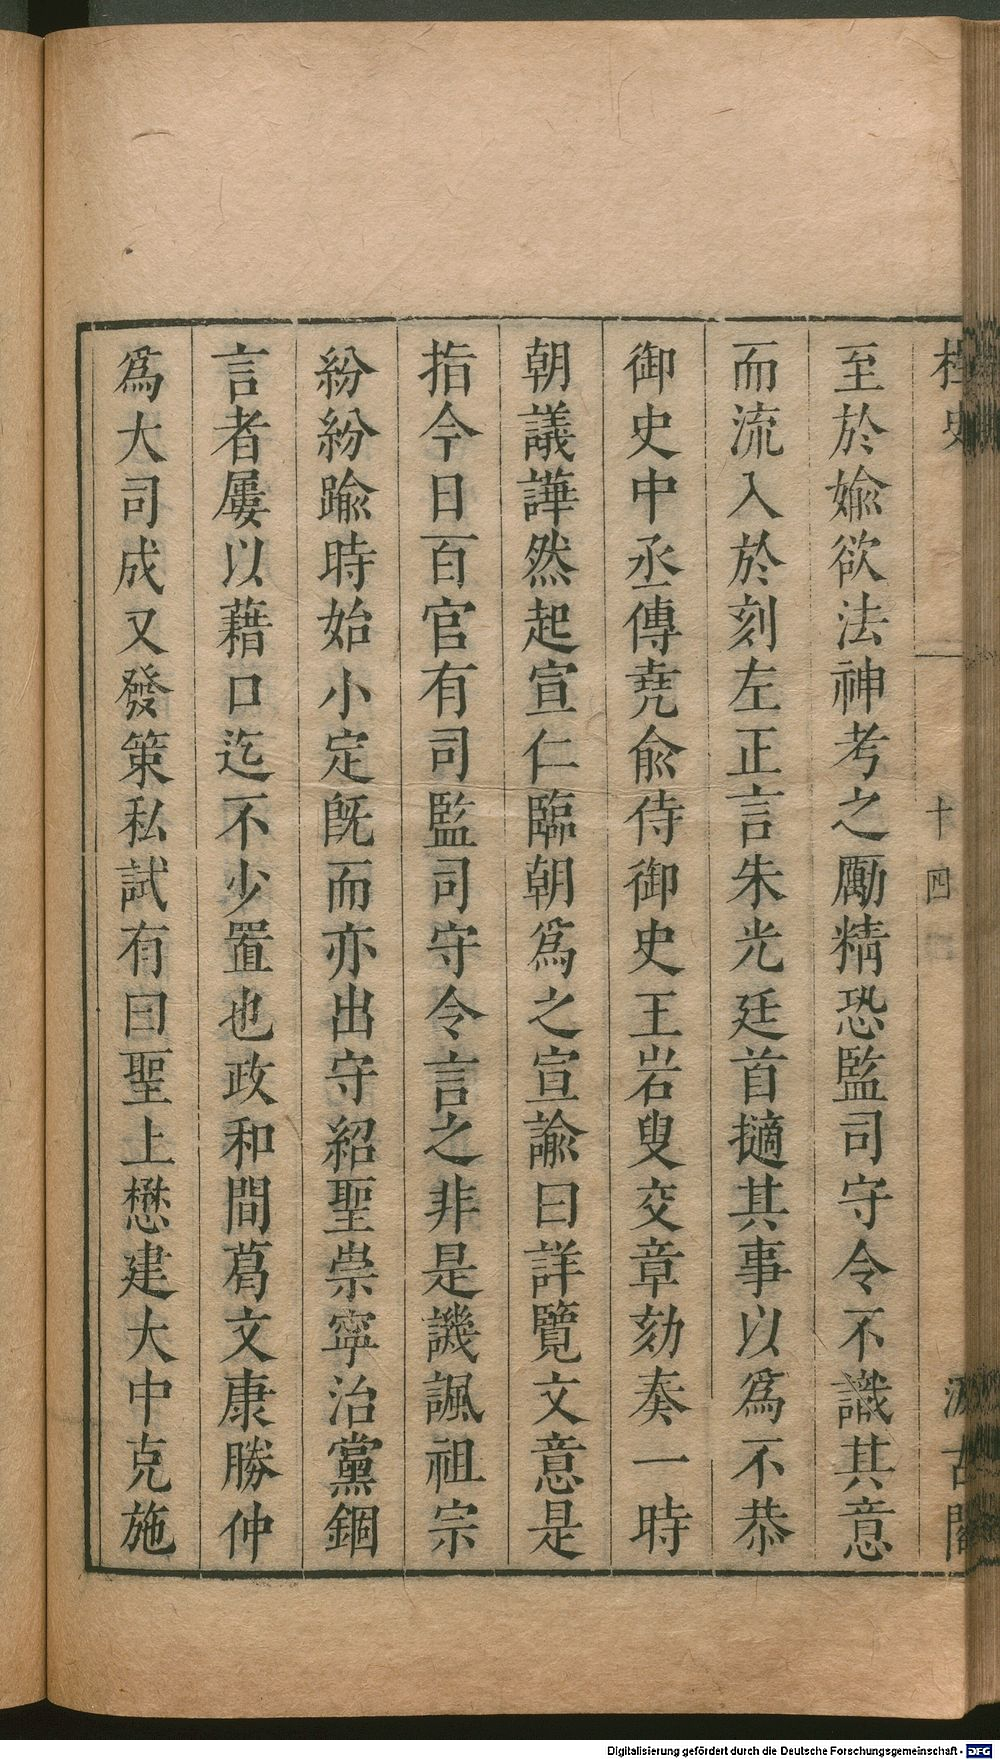 桯史
十四
汲古閣
至於婾欲法神考之勵精恐監司守令不識其意
而流入於刻左正言朱光廷首擿其事以爲不恭
御史中丞傳堯俞侍御史王岩叟交章劾奏一時
朝議譁然起宣仁臨朝爲之宣諭曰詳覽文意是
指今日百官有司監司守令言之非是譏諷祖宗
紛紛踰時始小定旣而亦出守紹聖崇寧治黨錮
言者屢以藉口迄不少置也政和間葛文康勝仲
爲大司成又發策私試有曰聖上懋建大中克施
Digitalisierung gefördert durch die Deutsche Forschungsgemeinschaft - DFG